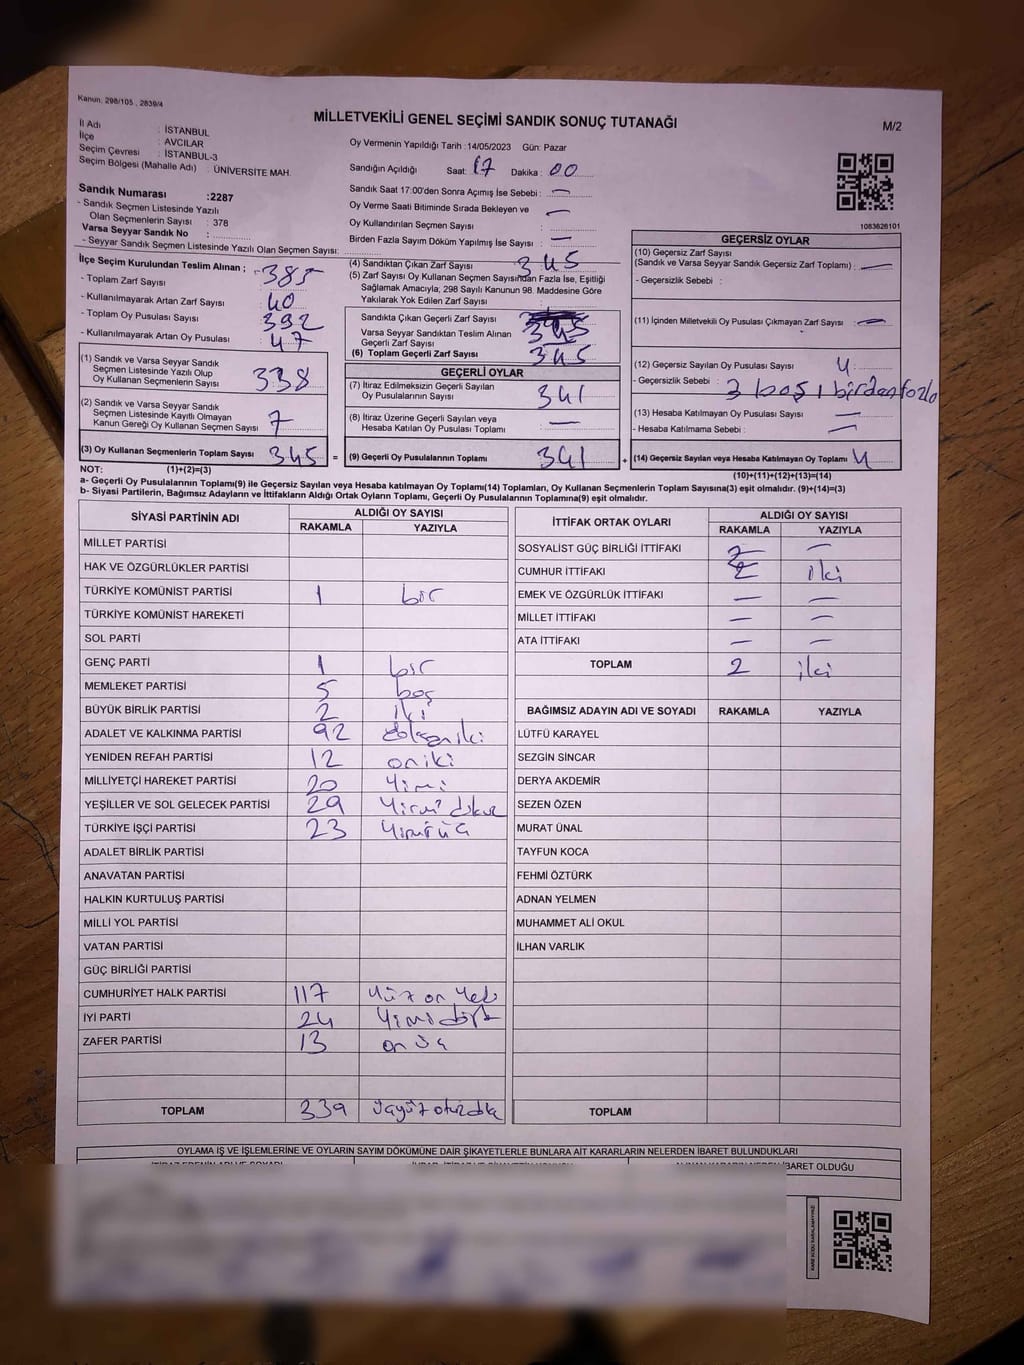 Kanun. 298/105 , 2839/4
MİLLETVEKİLİ GENEL SEÇİMİ SANDIK SONUÇ TUTANAĞI
M/2
İl Adı : İSTANBUL
İlçe : AVCILAR
Seçim Çevresi : İSTANBUL-3
Seçim Bölgesi (Mahalle Adı) : ÜNİVERSİTE MAH.
Sandık Numarası :2287
- Sandık Seçmen Listesinde Yazılı
Olan Seçmenlerin Sayısı : 378
Varsa Seyyar Sandık No :
- Seyyar Sandık Seçmen Listesinde Yazılı Olan Seçmen Sayısı:
Oy Vermenin Yapıldığı Tarih :14/05/2023 Gün: Pazar
Sandığın Açıldığı Saat: 17 Dakika: 00
Sandık Saat 17:00'den Sonra Açımış İse Sebebi : —
Oy Verme Saati Bitiminde Sırada Bekleyen ve
Oy Kullandırılan Seçmen Sayısı : —
Birden Fazla Sayım Döküm Yapılmış İse Sayısı : —
1083626101
İlçe Seçim Kurulundan Teslim Alınan ;
- Toplam Zarf Sayısı : 385
- Kullanılmayarak Artan Zarf Sayısı : 40
- Toplam Oy Pusulası Sayısı : 392
- Kullanılmayarak Artan Oy Pusulası : 47
(1) Sandık ve Varsa Seyyar Sandık
Seçmen Listesinde Yazılı Olup
Oy Kullanan Seçmenlerin Sayısı 338
(2) Sandık ve Varsa Seyyar Sandık
Seçmen Listesinde Kayıtlı Olmayan
Kanun Gereği Oy Kullanan Seçmen Sayısı 7
(3) Oy Kullanan Seçmenlerin Toplam Sayısı 345 =
(4) Sandıktan Çıkan Zarf Sayısı 345
(5) Zarf Sayısı Oy Kullanan Seçmen Sayısından Fazla İse, Eşitliği
Sağlamak Amacıyla, 298 Sayılı Kanunun 98. Maddesine Göre
Yakılarak Yok Edilen Zarf Sayısı :
Sandıkta Çıkan Geçerli Zarf Sayısı
Varsa Seyyar Sandıktan Teslim Alınan
Geçerli Zarf Sayısı 345
(6) Toplam Geçerli Zarf Sayısı 345
GEÇERLİ OYLAR
(7) İtiraz Edilmeksizin Geçerli Sayılan
Oy Pusulalarının Sayısı 341
(8) İtiraz Üzerine Geçerli Sayılan veya
Hesaba Katılan Oy Pusulası Toplamı —
(9) Geçerli Oy Pusulalarının Toplamı 341 +
GEÇERSİZ OYLAR
(10) Geçersiz Zarf Sayısı
(Sandık ve Varsa Seyyar Sandık Geçersiz Zarf Toplamı) : —
- Geçersizlik Sebebi :
(11) İçinden Milletvekili Oy Pusulası Çıkmayan Zarf Sayısı : —
(12) Geçersiz Sayılan Oy Pusulası Sayısı : 4
- Geçersizlik Sebebi : 3 boş 1 birden fazla
(13) Hesaba Katılmayan Oy Pusulası Sayısı : —
- Hesaba Katılmama Sebebi : —
(14) Geçersiz Sayılan veya Hesaba Katılmayan Oy Toplamı 4
NOT: (1)+(2)=(3)
(10)+(11)+(12)+(13)=(14)
a- Geçerli Oy Pusulalarının Toplamı(9) ile Geçersiz Sayılan veya Hesaba Katılmayan Oy Toplamı(14) Toplamları, Oy Kullanan Seçmenlerin Toplam Sayısına(3) eşit olmalıdır. (9)+(14)=(3)
b- Siyasi Partilerin, Bağımsız Adayların ve İttifakların Aldığı Ortak Oyların Toplamı, Geçerli Oy Pusulalarının Toplamına(9) eşit olmalıdır.
SİYASİ PARTİNİN ADI ALDIĞI OY SAYISI
RAKAMLA YAZIYLA
MİLLET PARTİSİ
HAK VE ÖZGÜRLÜKLER PARTİSİ
TÜRKİYE KOMÜNİST PARTİSİ 1 bir
TÜRKİYE KOMÜNİST HAREKETİ
SOL PARTİ
GENÇ PARTİ 1 bir
MEMLEKET PARTİSİ 5 beş
BÜYÜK BİRLİK PARTİSİ 2 iki
ADALET VE KALKINMA PARTİSİ 92
YENİDEN REFAH PARTİSİ 12 oniki
MİLLİYETÇİ HAREKET PARTİSİ 20 Yirmi
YEŞİLLER VE SOL GELECEK PARTİSİ 29 Yirmi dokuz
TÜRKİYE İŞÇİ PARTİSİ 23 Yirmi üç
ADALET BİRLİK PARTİSİ
ANAVATAN PARTİSİ
HALKIN KURTULUŞ PARTİSİ
MİLLİ YOL PARTİSİ
VATAN PARTİSİ
GÜÇ BİRLİĞİ PARTİSİ
CUMHURİYET HALK PARTİSİ 117 Yüz on Yedi
İYİ PARTİ 24 Yirmi dört
ZAFER PARTİSİ 13 on üç
TOPLAM 339 üçyüz otuz dokuz
İTTİFAK ORTAK OYLARI ALDIĞI OY SAYISI
RAKAMLA YAZIYLA
SOSYALİST GÜÇ BİRLİĞİ İTTİFAKI —
CUMHUR İTTİFAKI 2 iki
EMEK VE ÖZGÜRLÜK İTTİFAKI — —
MİLLET İTTİFAKI — —
ATA İTTİFAKI — —
TOPLAM 2 iki
BAĞIMSIZ ADAYIN ADI VE SOYADI RAKAMLA YAZIYLA
LÜTFÜ KARAYEL
SEZGİN SİNCAR
DERYA AKDEMİR
SEZEN ÖZEN
MURAT ÜNAL
TAYFUN KOCA
FEHMİ ÖZTÜRK
ADNAN YELMEN
MUHAMMET ALİ OKUL
İLHAN VARLIK
TOPLAM
OYLAMA İŞ VE İŞLEMLERİNE VE OYLARIN SAYIM DÖKÜMÜNE DAİR ŞİKAYETLERLE BUNLARA AİT KARARLARIN NELERDEN İBARET BULUNDUKLARI
İBARET OLDUĞU